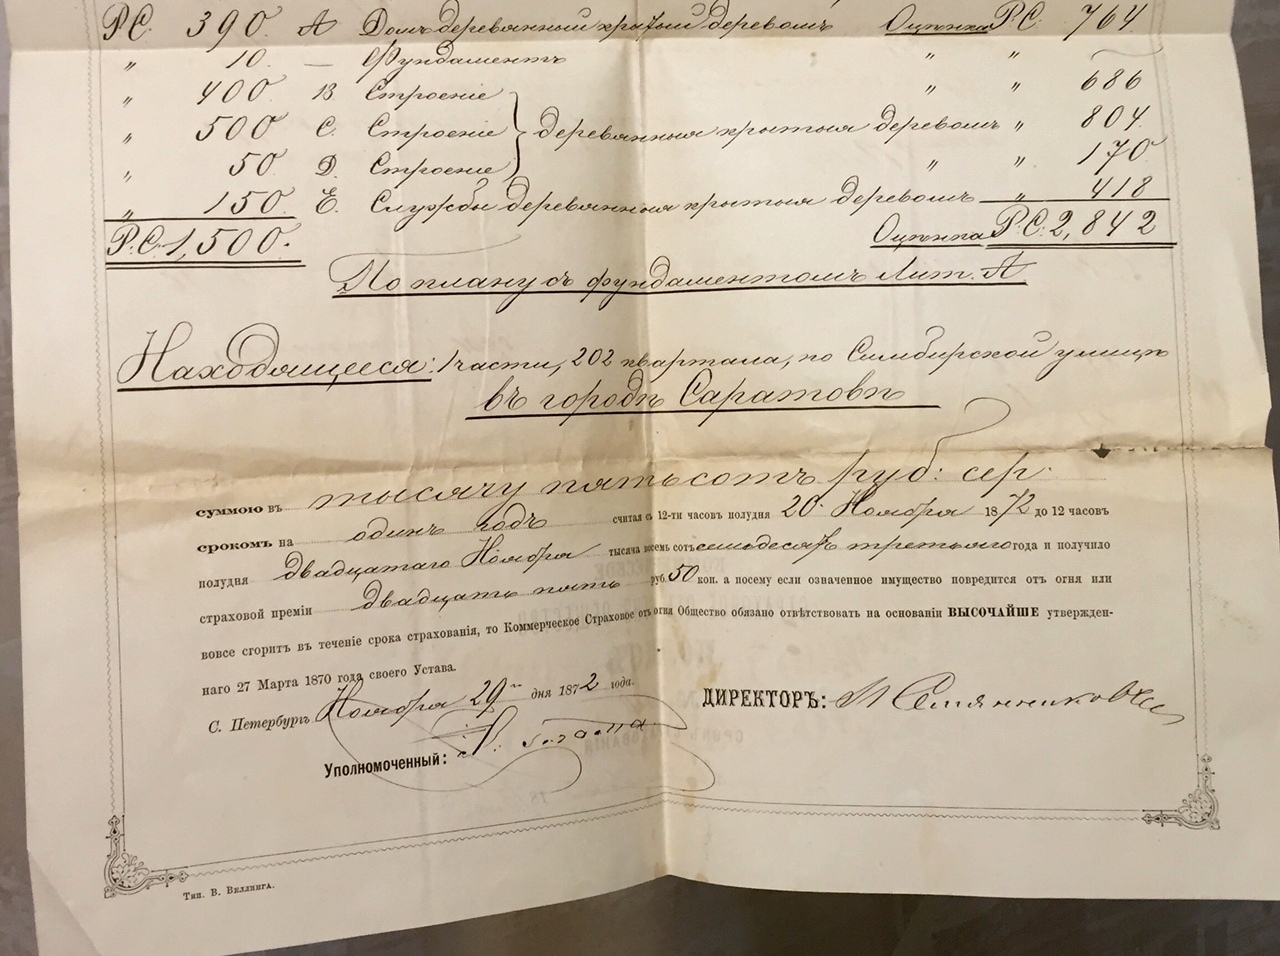 Р.С. 390. А Домъ деревянный крытый деревомъ Оцѣнка Р.С. 764
„ 10. — Фундаментъ „ „ —
„ 400 В. Строеніе „ „ 686
„ 500 С. Строеніе } деревянныя крытыя деревомъ „ 804.
„ 50 D. Строеніе „ „ 170
„ 150. Е. Службы деревянныя крытыя деревомъ „ 418
Р.С. 1,500. Оцѣнка Р.С. 2,842
По плану съ фундаментомъ Лит. А
Находящееся: 1 части, 202 квартала, по Симбирской улицѣ
въ городѣ Саратовѣ
суммою въ тысячу пятьсотъ руб: сер.
срокомъ на одинъ годъ считая съ 12-ти часовъ полудня 20. Ноября 1872 до 12 часовъ
полудня двадцатаго Ноября тысяча восемь сотъ семьдесятъ третьяго года и получило
страховой преміи двадцать пять руб. 50 коп. а посему если означенное имущество повредится отъ огня или
вовсе сгоритъ въ теченіе срока страхованія, то Коммерческое Страховое отъ огня Общество обязано отвѣтствовать на основаніи ВЫСОЧАЙШЕ утвержден-
наго 27 Марта 1870 года своего Устава.
С. Петербургъ Ноября 29 дня 1872 года.
ДИРЕКТОРЪ: Семянников
Уполномоченный:
Тип. В. Веллинга.